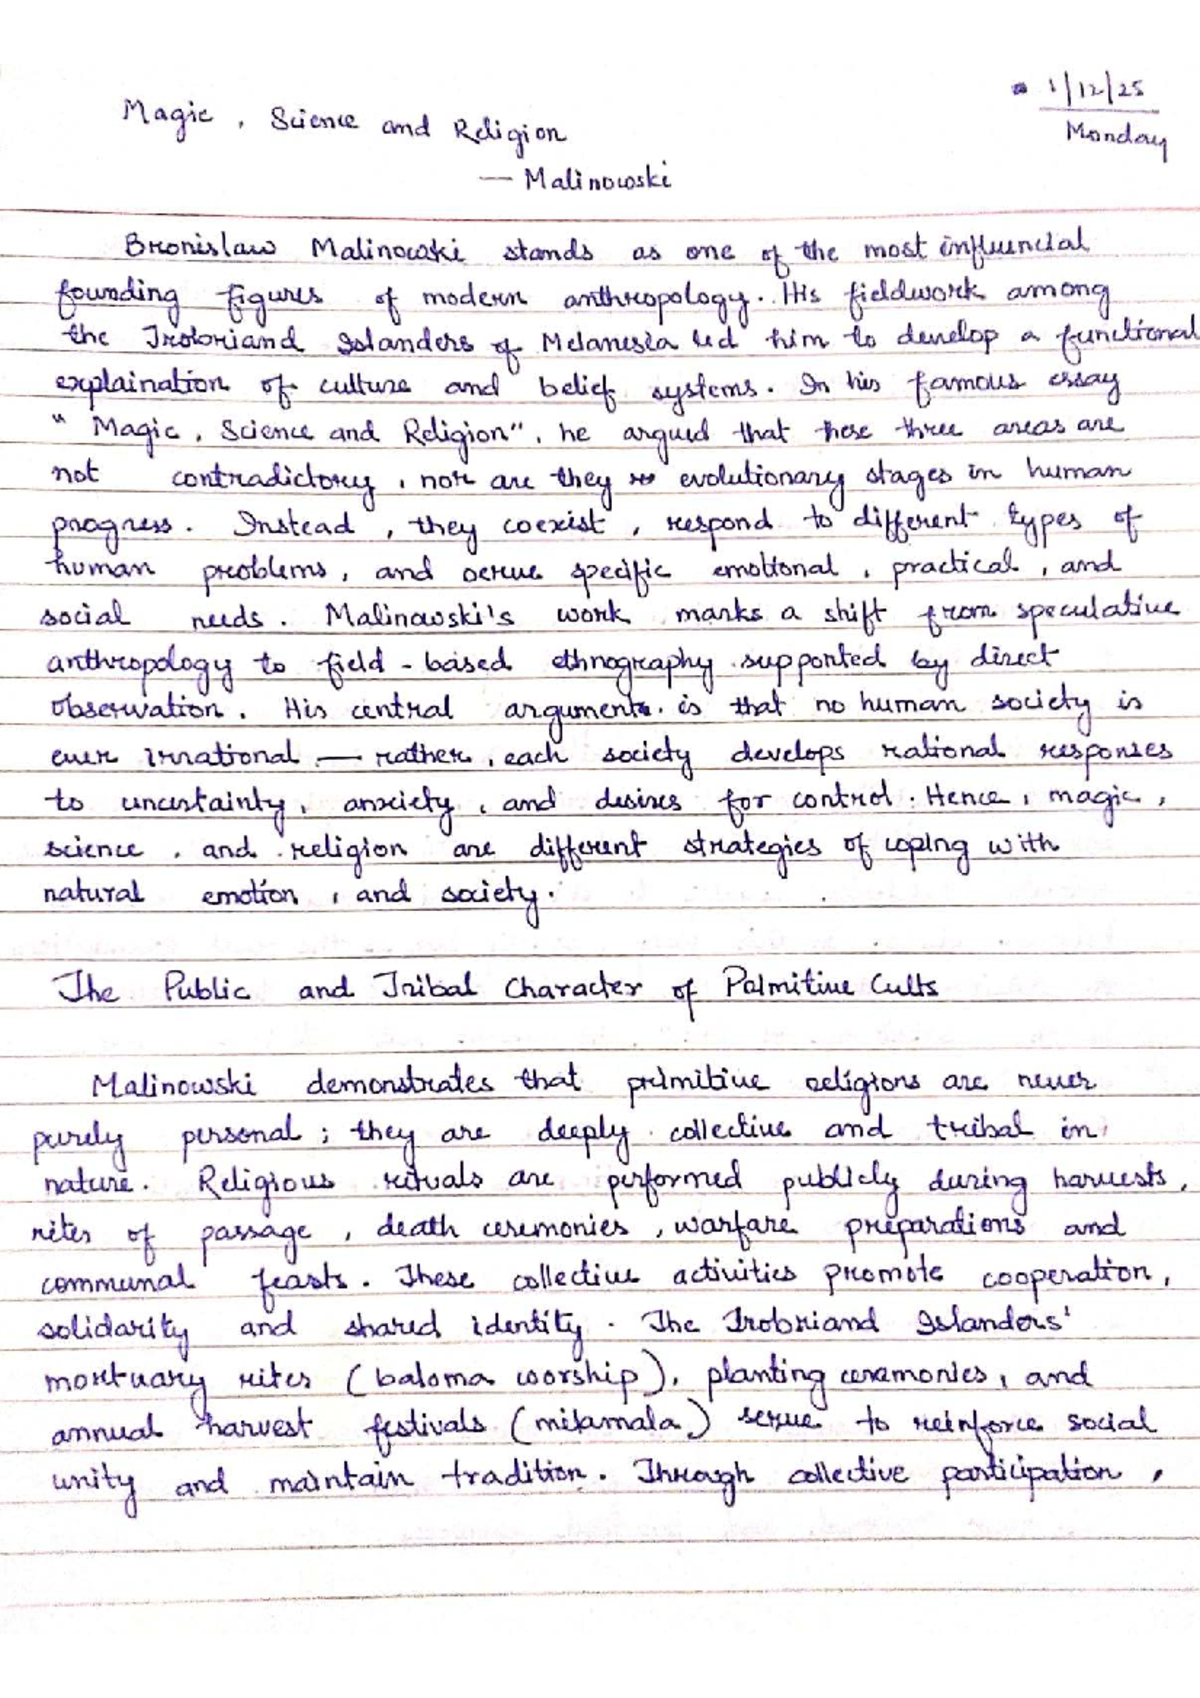 1/12/25
Monday
Magic, Science and Religion
— Malinowski
Bronislaw Malinowski stands as one of the most influencial
founding figures of modern anthropology. His fieldwork among
the Trobriand Islanders of Melanesia led him to develop a functional
explaination of culture and belief systems. In his famous essay
"Magic, Science and Religion", he argued that these three areas are
not contradictory, nor are they evolutionary stages in human
progress. Instead, they coexist, respond to different types of
human problems, and serve specific emotional, practical, and
social needs. Malinowski's work marks a shift from speculative
anthropology to field-based ethnography supported by direct
observation. His central argument is that no human society is
ever irrational — rather, each society develops rational responses
to uncertainty, anxiety, and desires for control. Hence, magic,
science, and religion are different strategies of coping with
natural emotion, and society.
The Public and Tribal Character of Palmitive Cults
Malinowski demonstrates that primitive religions are never
purely personal; they are deeply collective and tribal in
nature. Religious rituals are performed publicly during harvests,
rites of passage, death ceremonies, warfare preparations and
communal feasts. These collective activities promote cooperation,
solidarity and shared identity. The Trobriand Islanders'
mortuary rites (baloma worship), planting ceremonies, and
annual harvest festivals (milamala) serve to reinforce social
unity and maintain tradition. Through collective participation,